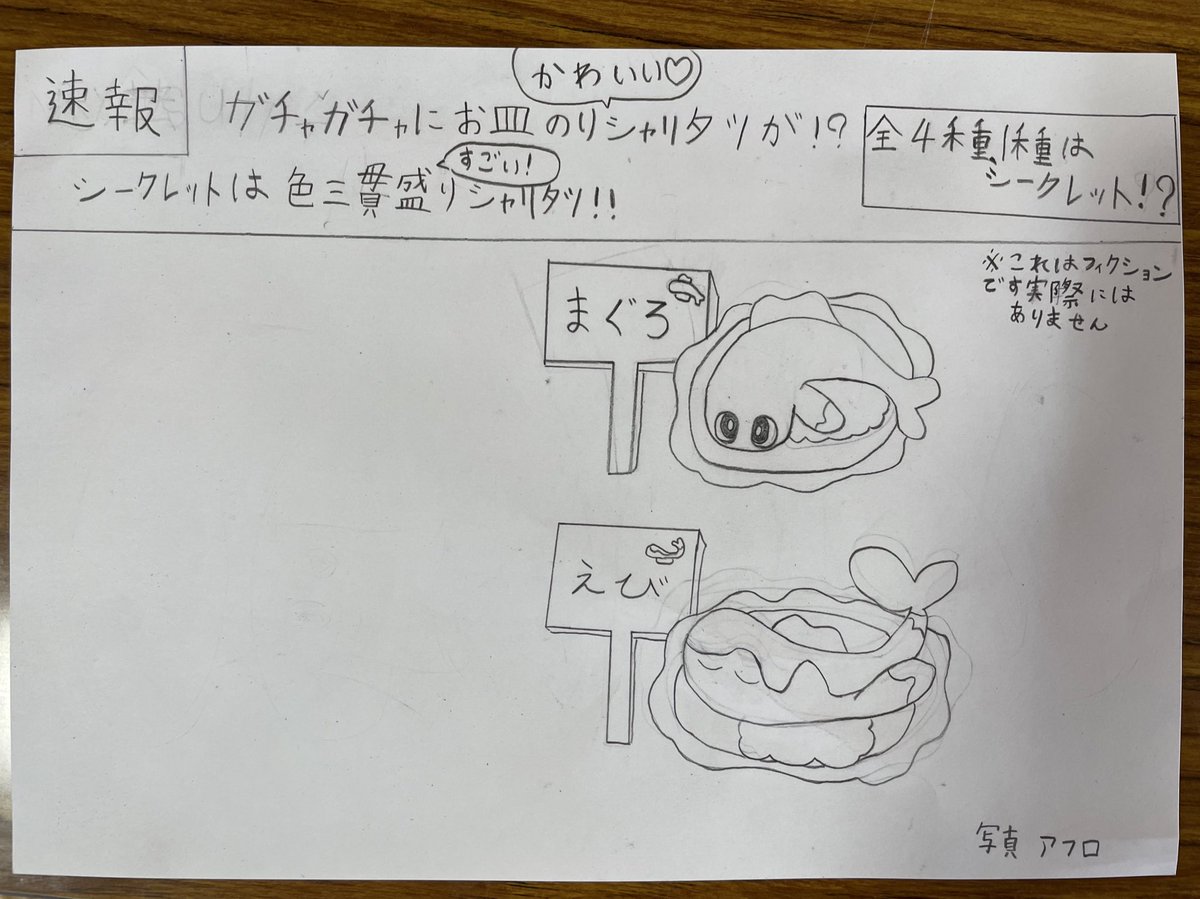 速報
かわいい♡
ガチャガチャにお皿のりシャリタツが!?
すごい!
シークレットは色三貫盛りシャリタツ!!
全4種、1種は
シークレット!?
※これはフィクション
です実際には
ありません
まぐろ
えび
写真 アフロ